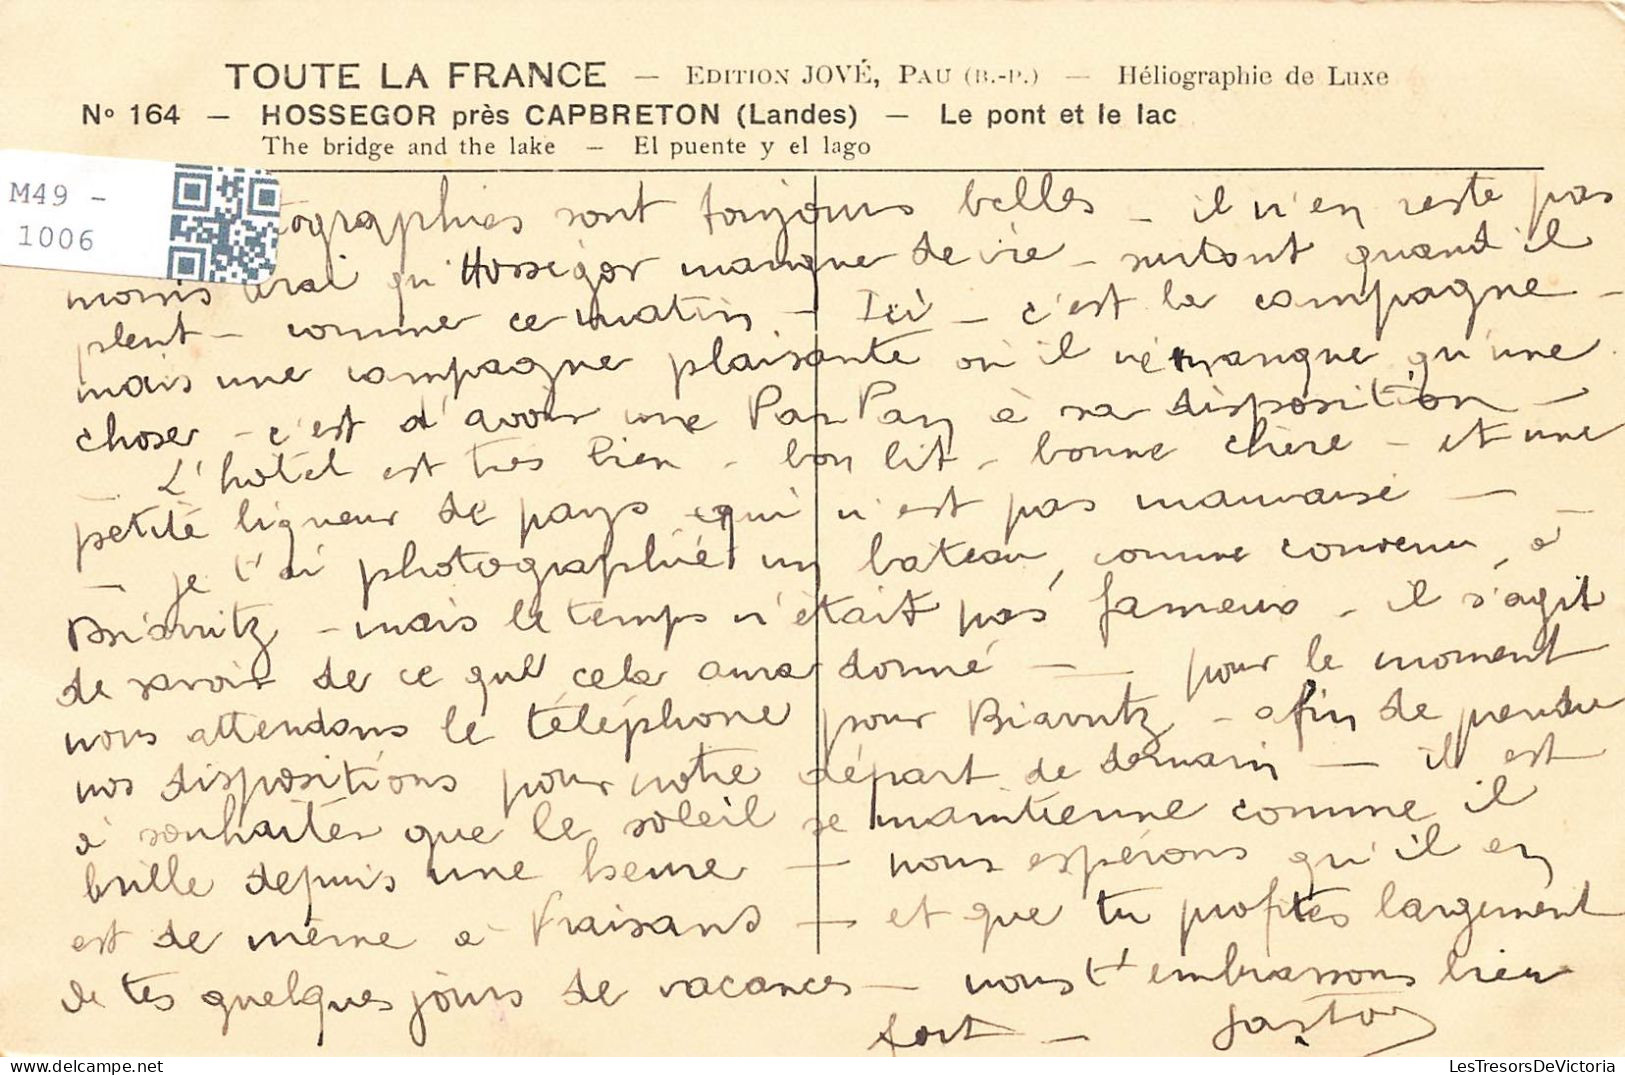 TOUTE LA FRANCE — EDITION JOVÉ, PAU (B.-P.) — Héliographie de Luxe
N° 164 — HOSSEGOR près CAPBRETON (Landes) — Le pont et le lac
The bridge and the lake — El puente y el lago
M49 -
1006
tographies sont toujours belles - il n'en reste pas
moins vrai qu'Hossegor manque de vie - surtout quand il
pleut - comme ce matin - Ici - c'est la campagne -
mais une campagne plaisante où il ne manque qu'une
chose - c'est d'avoir une Pan Pan à sa disposition -
L'hôtel est très bien - bon lit - bonne chère - et une
petite liqueur de pays qui n'est pas mauvaise -
- je t'ai photographié un bateau, comme convenu, à
Biarritz - mais le temps n'était pas fameux - il s'agit
de savoir de ce que cela aura donné - - pour le moment
nous attendons le téléphone pour Biarritz - afin de prendre
nos dispositions pour notre départ de demain - il est
à souhaiter que le soleil se maintienne comme il
brille depuis une heure - nous espérons qu'il en
est de même à Fraisans - et que tu profites largement
de tes quelques jours de vacances - nous t'embrassons bien
fort - Gaston
LesTresorsDeVictoria